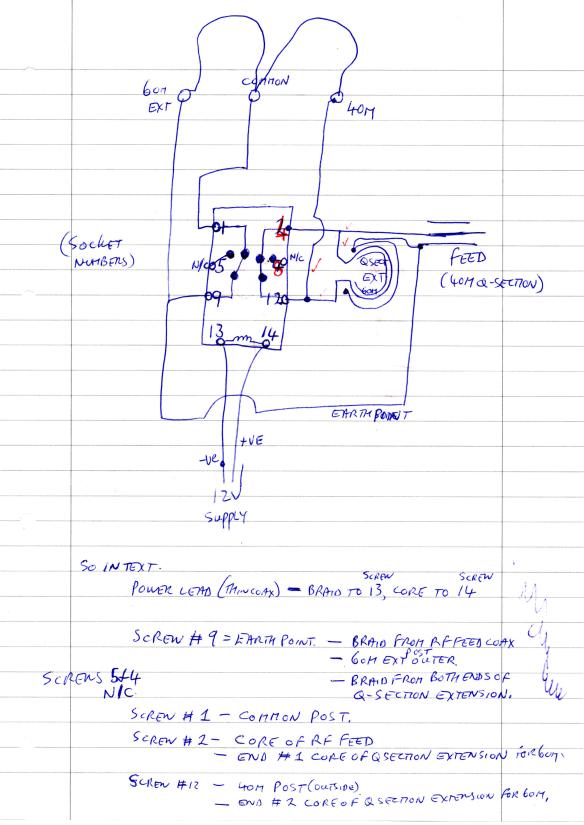 60M
EXT
COMMON
40M
(SOCKET
NUMBERS)
1
N/C 5
N/C
9
12
13
14
QSECT
EXT
60M
FEED
(40M Q-SECTION)
EARTH POINT
-VE
+VE
12V
SUPPLY
SO IN TEXT.
SCREW SCREW
POWER LEAD (THIN COAX) — BRAID TO 13, CORE TO 14
SCREW # 9 = EARTH POINT. — BRAID FROM RF FEED COAX
— 60M EXT POST OUTER.
SCREWS 5+4 — BRAID FROM BOTH ENDS OF
N/C. Q-SECTION EXTENSION.
SCREW # 1 — COMMON POST.
SCREW # 2 — CORE OF RF FEED
— END #1 CORE OF Q SECTION EXTENSION FOR 60M.
SCREW #12 — 40M POST (OUTSIDE)
— END #2 CORE OF Q SECTION EXTENSION FOR 60M,